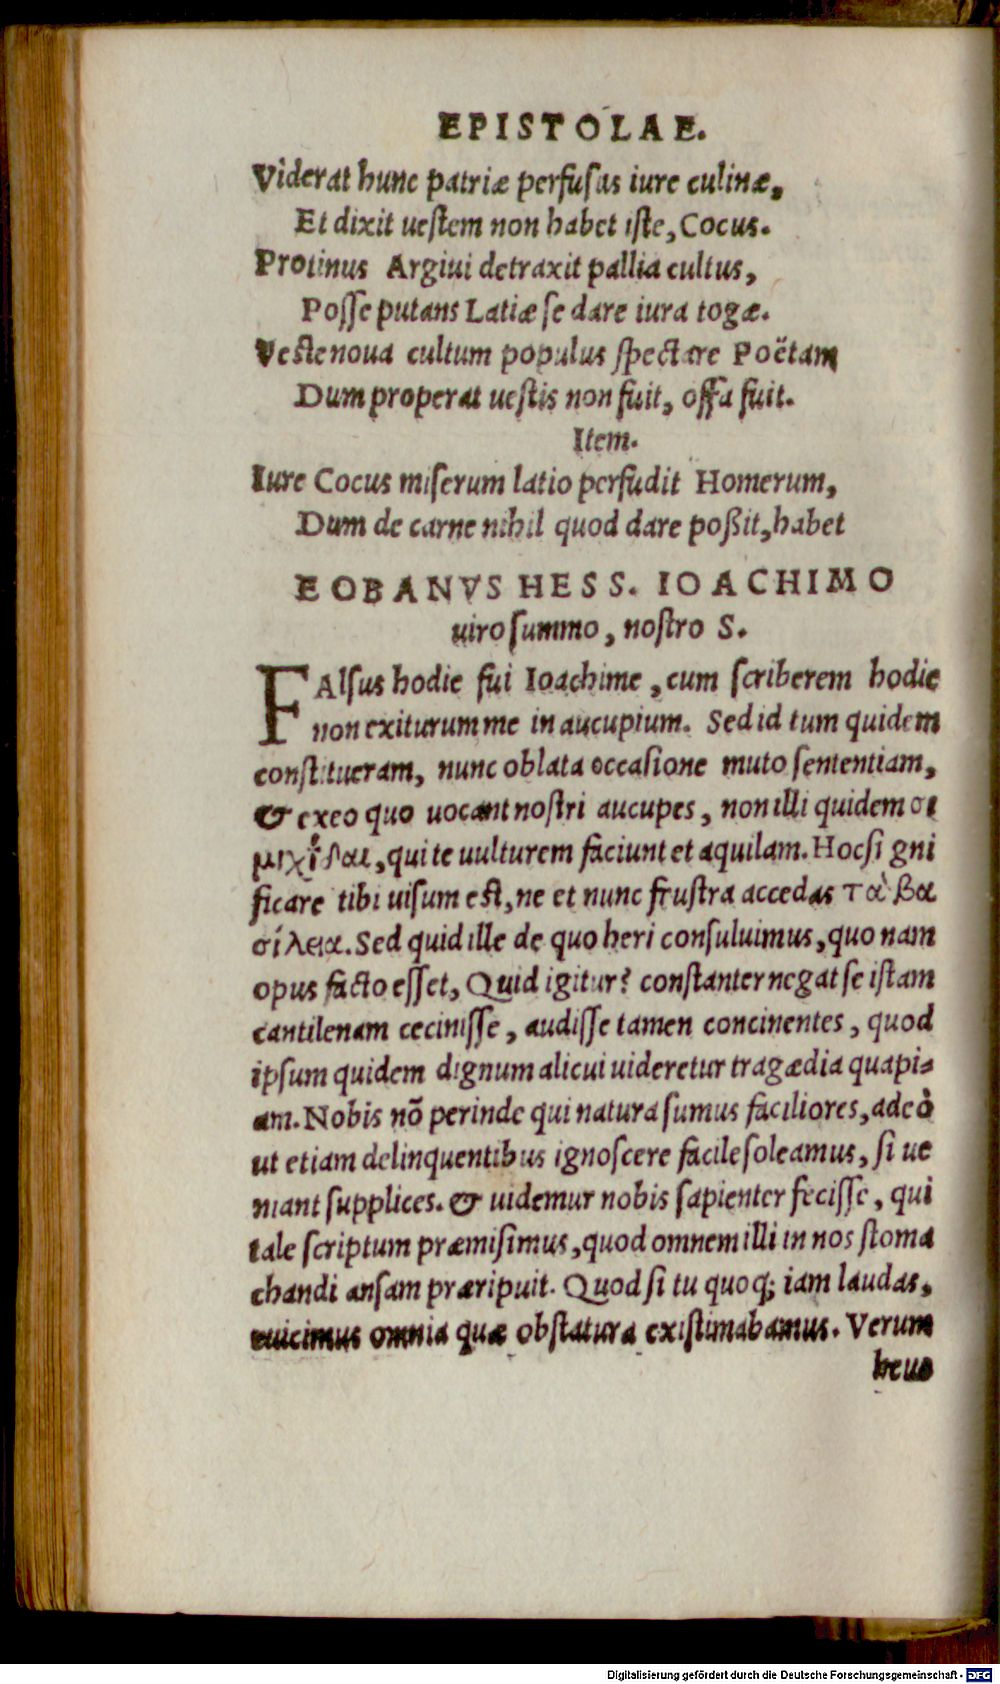 EPISTOLAE.
Viderat hunc patriæ perfusus iure culinæ,
Et dixit uestem non habet iste, Cocus.
Protinus Argiui detraxit pallia cultus,
Posse putans Latiæ se dare iura togæ.
Veste noua cultum populus spectare Poëtam
Dum properat uestis non fuit, offa fuit.
Item.
Iure Cocus miserum latio perfudit Homerum,
Dum de carne nihil quod dare poßit, habet
EOBANVS HESS. IOACHIMO
uiro summo, nostro S.
FAlsus hodie fui Ioachime, cum scriberem hodie
non exiturum me in aucupium. Sed id tum quidem
constitueram, nunc oblata occasione muto sententiam,
& exeo quo uocant nostri aucupes, non illi quidem οἱ
μιχῦδαι, qui te uulturem faciunt et aquilam. Hoc signi
ficare tibi uisum est, ne et nunc frustra accedas τὰ βα
σίλεια. Sed quid ille de quo heri consuluimus, quo nam
opus facto esset, Quid igitur? constanter negat se istam
cantilenam cecinisse, audisse tamen concinentes, quod
ipsum quidem dignum alicui uideretur tragædia quapi⸗
am. Nobis nõ perinde qui natura sumus faciliores, adeò
ut etiam delinquentibus ignoscere facile soleamus, si ue
niant supplices. & uidemur nobis sapienter fecisse, qui
tale scriptum præmisimus, quod omnem illi in nos stoma
chandi ansam præripuit. Quod si tu quoq; iam laudas,
euicimus omnia quæ obstatura existimabamus. Verum
heus
Digitalisierung gefördert durch die Deutsche Forschungsgemeinschaft - DFG